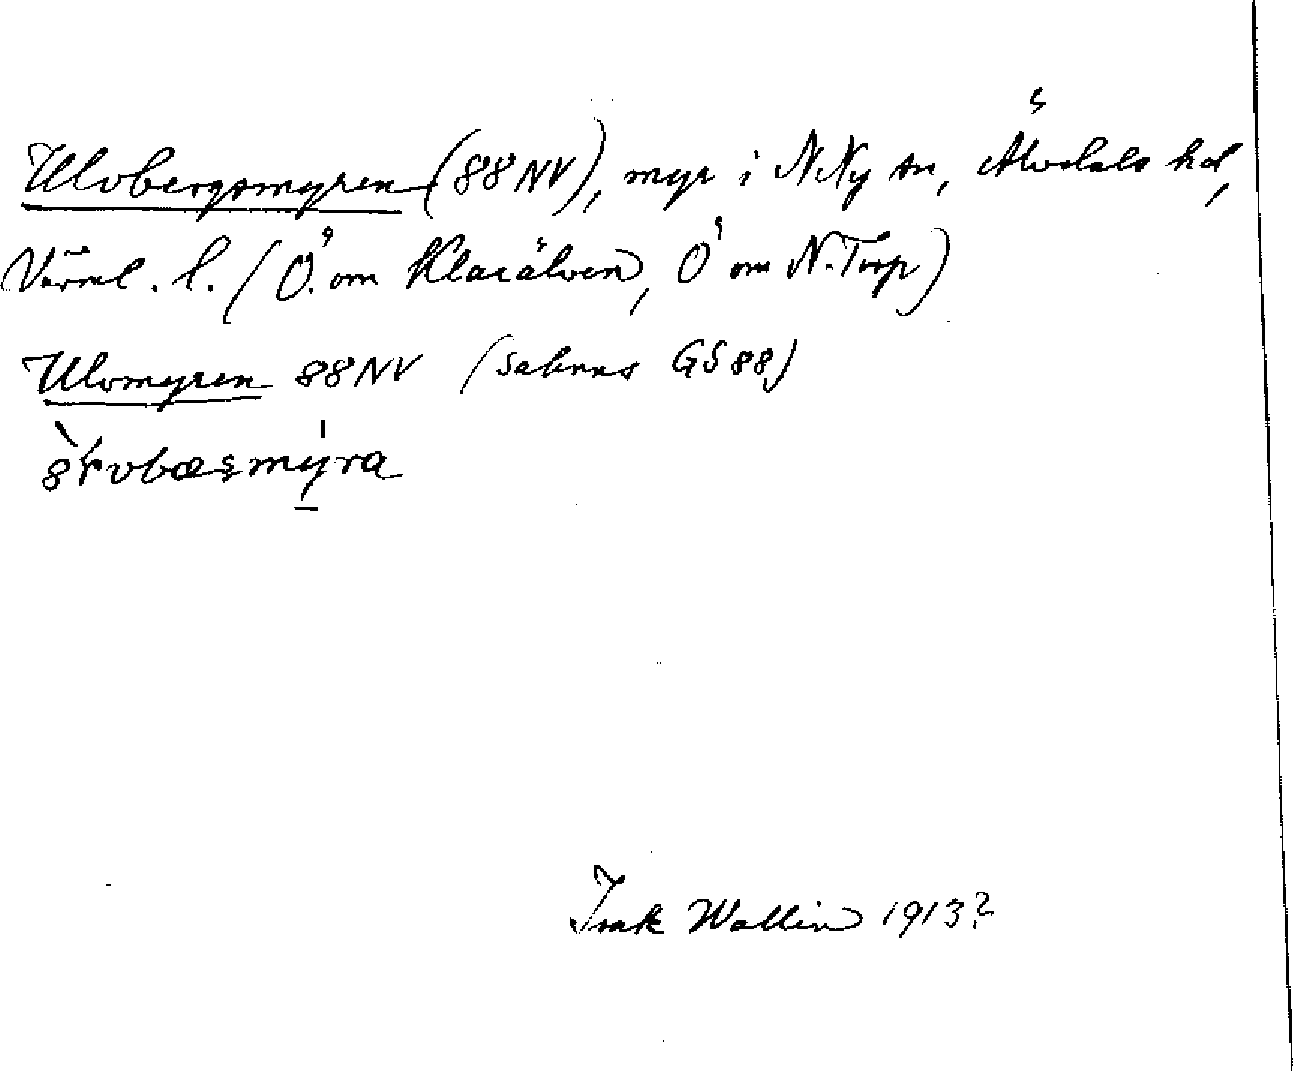 Ulvbergsmyren (88 NV), myr i N Ny sn, Älvdals hd,
Värml. l. (Ö. om Klarälven, Ö om N. Torp)
Ulvmyren 88 NV (Saknas GS 88)
Isak Wallin 1913?